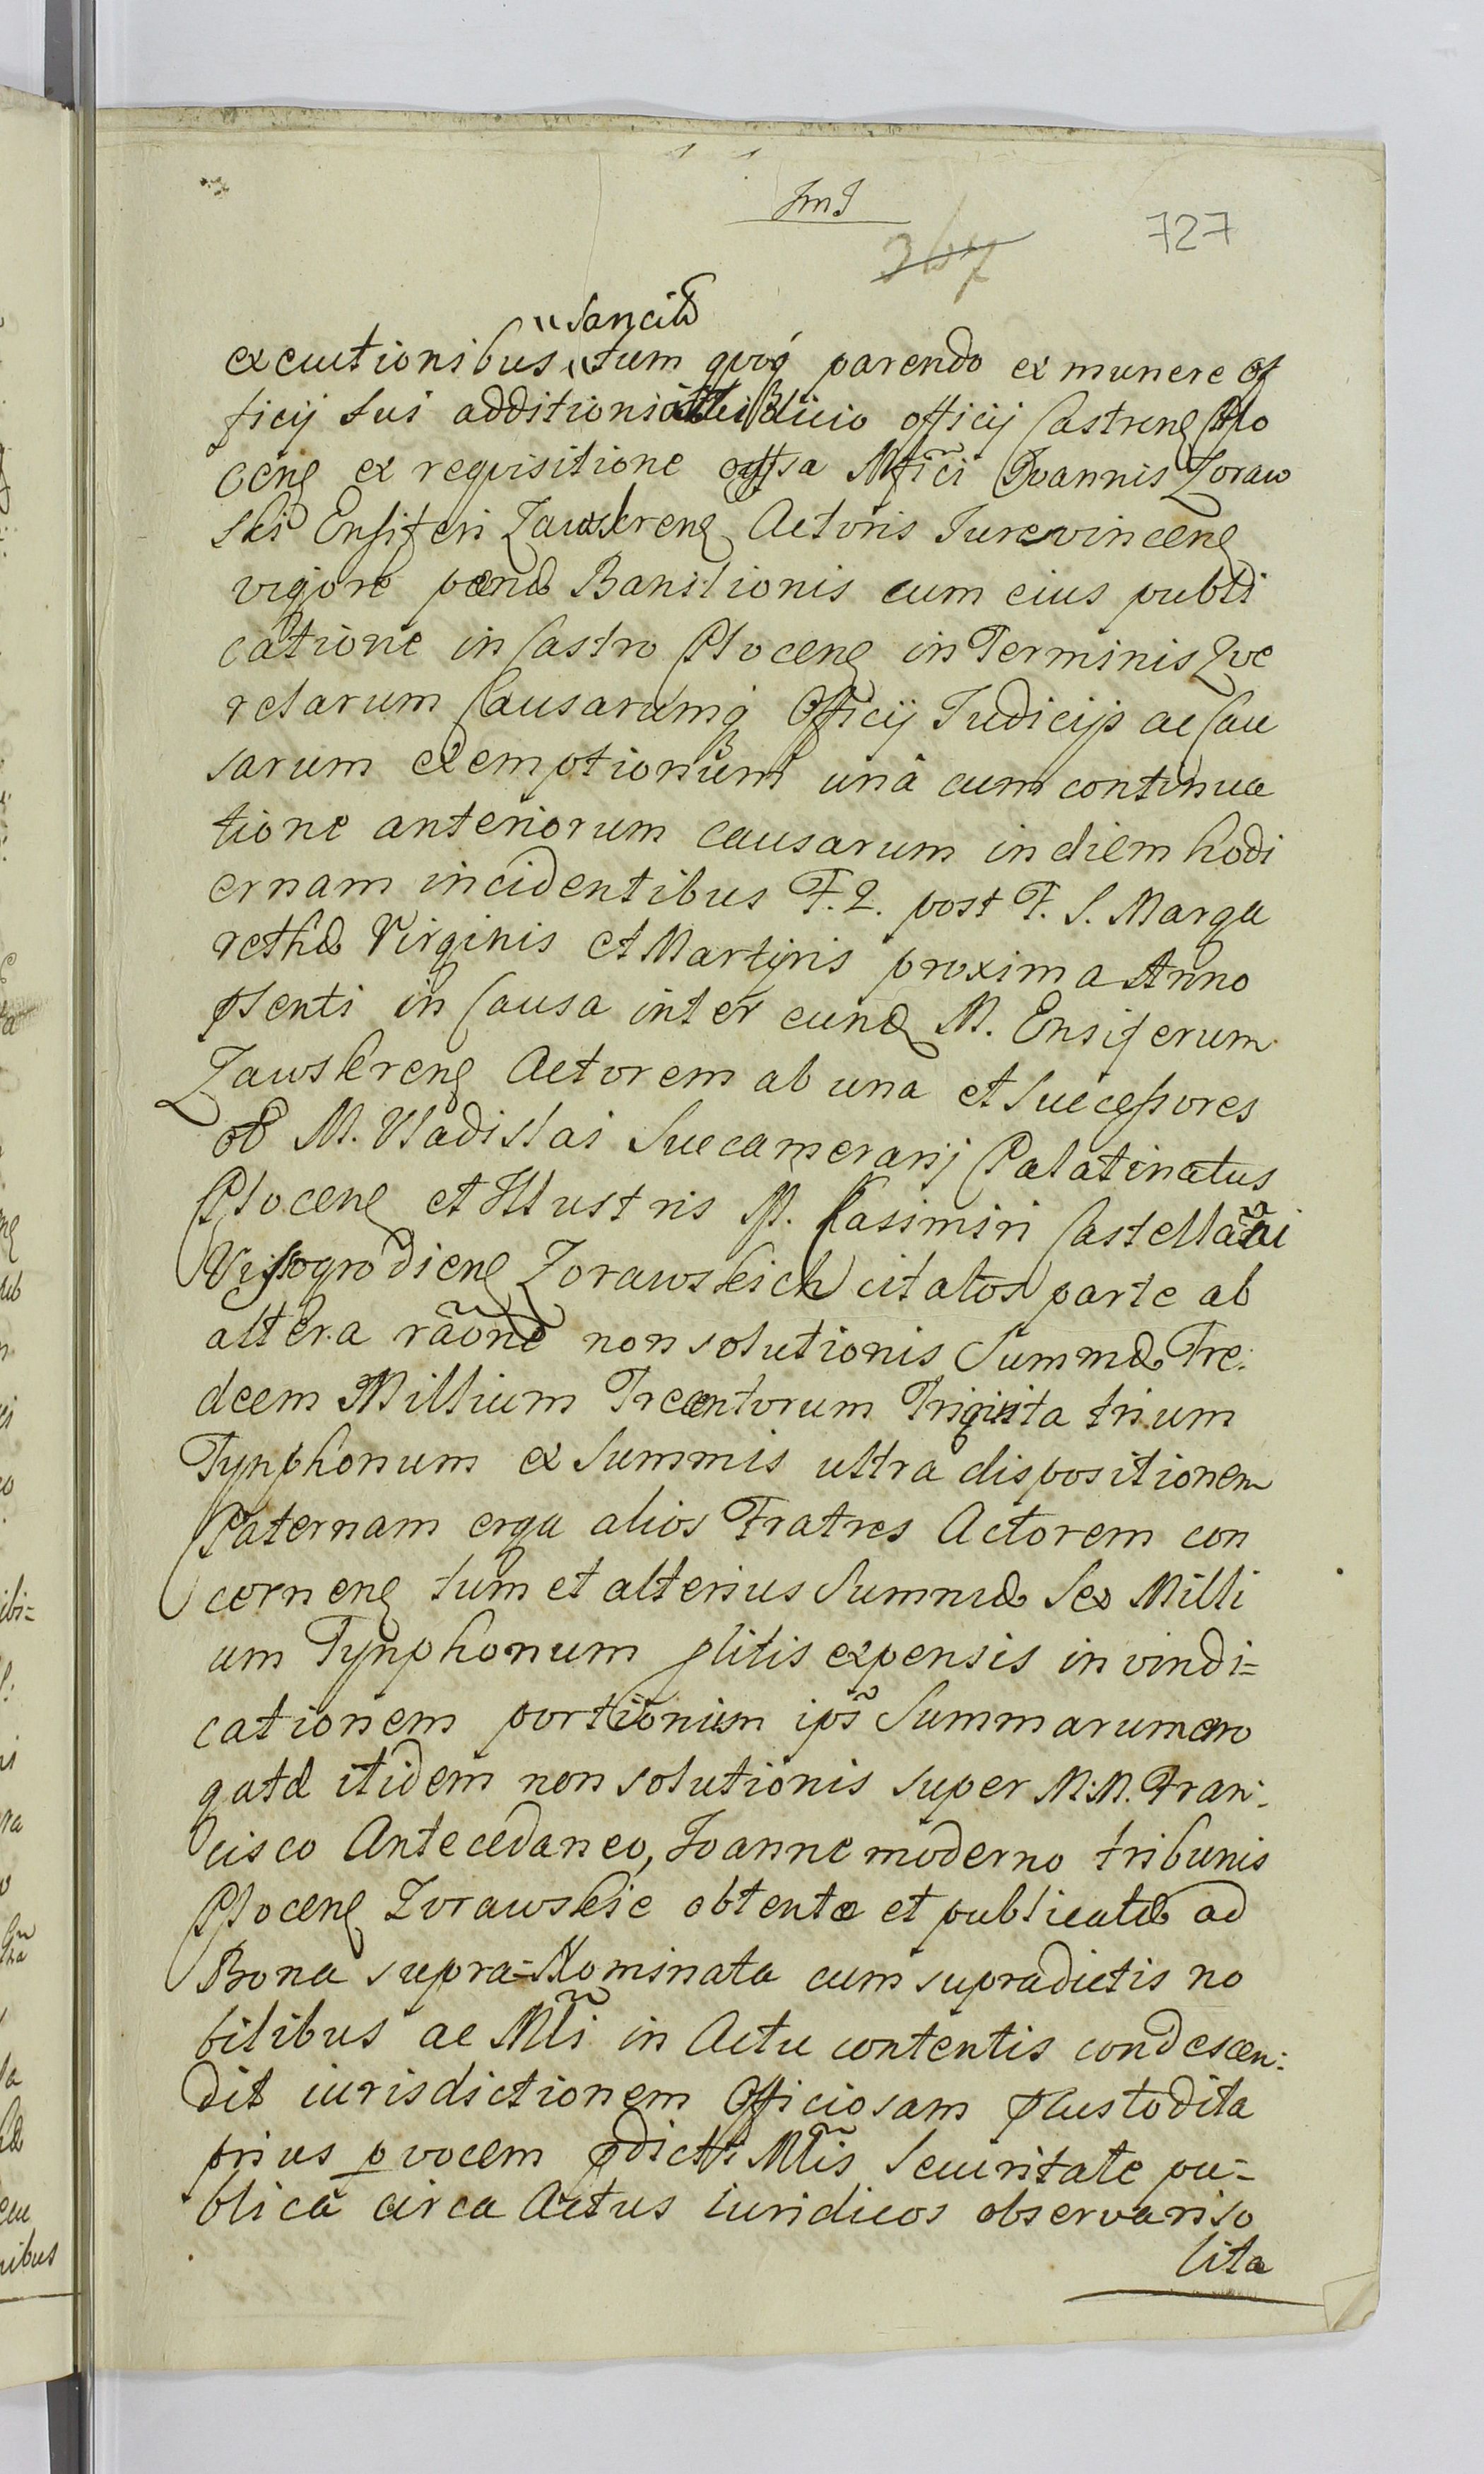 JmJ
367 727
sancitis
executionibus tum quoq parendo ex munere of
ficij sui additioni officij Castreng Plo
ceng ex requisitione Mfici Joannis Zoraw
ski Ensiferi Zawskreng Actoris Jurevinceng
vigore pœnæ Banitionis cum eius publi
catione in Castro Ploceng in Terminis Que
relarum Causarumq Officij Judicijs ac Cau
sarum exemptionum unâ cum continua
tione anteriorum causarum in diem hodi
ernam incidentibus F. 2. post F. S. Marga
rethæ Virginis et Martyris proxima Anno
psenti in Causa inter eund M. Ensiferum
Zawskreng Actorem ab una et Successores
ol M. Vladislai Succamerarij Palatinatus
Ploceng et Illustris M. Casimiri Castellani
Vissogrodieng Zorawskich citatos parte ab
altera raõne non solutionis Summæ Tre:
decem Millium Trecentorum Triginta trium
Tynphonum ex Summis ultra dispositionem
Paternam erga alios Fratres Actorem con
cerneng tum et alterius Summæ Sex Milli
um Tynphonum plitis expensis in vindi=
cationem portionum ips Summarum ero
gatæ itidem non solutionis super M:M. Fran:
cisco Antecedaneo, Joanne moderno tribunis
Ploceng Zorawskie obtentæ et publicatæ ad
Bona supra=Nominata cum supradictis no
bilibus ac Mli in Actu contentis condescen:
dit iurisdictionem Officiosam pcustodita
prius p vocem pdicti Mlis Securitate pu=
blicâ circa Actus iuridicos observari so
lita